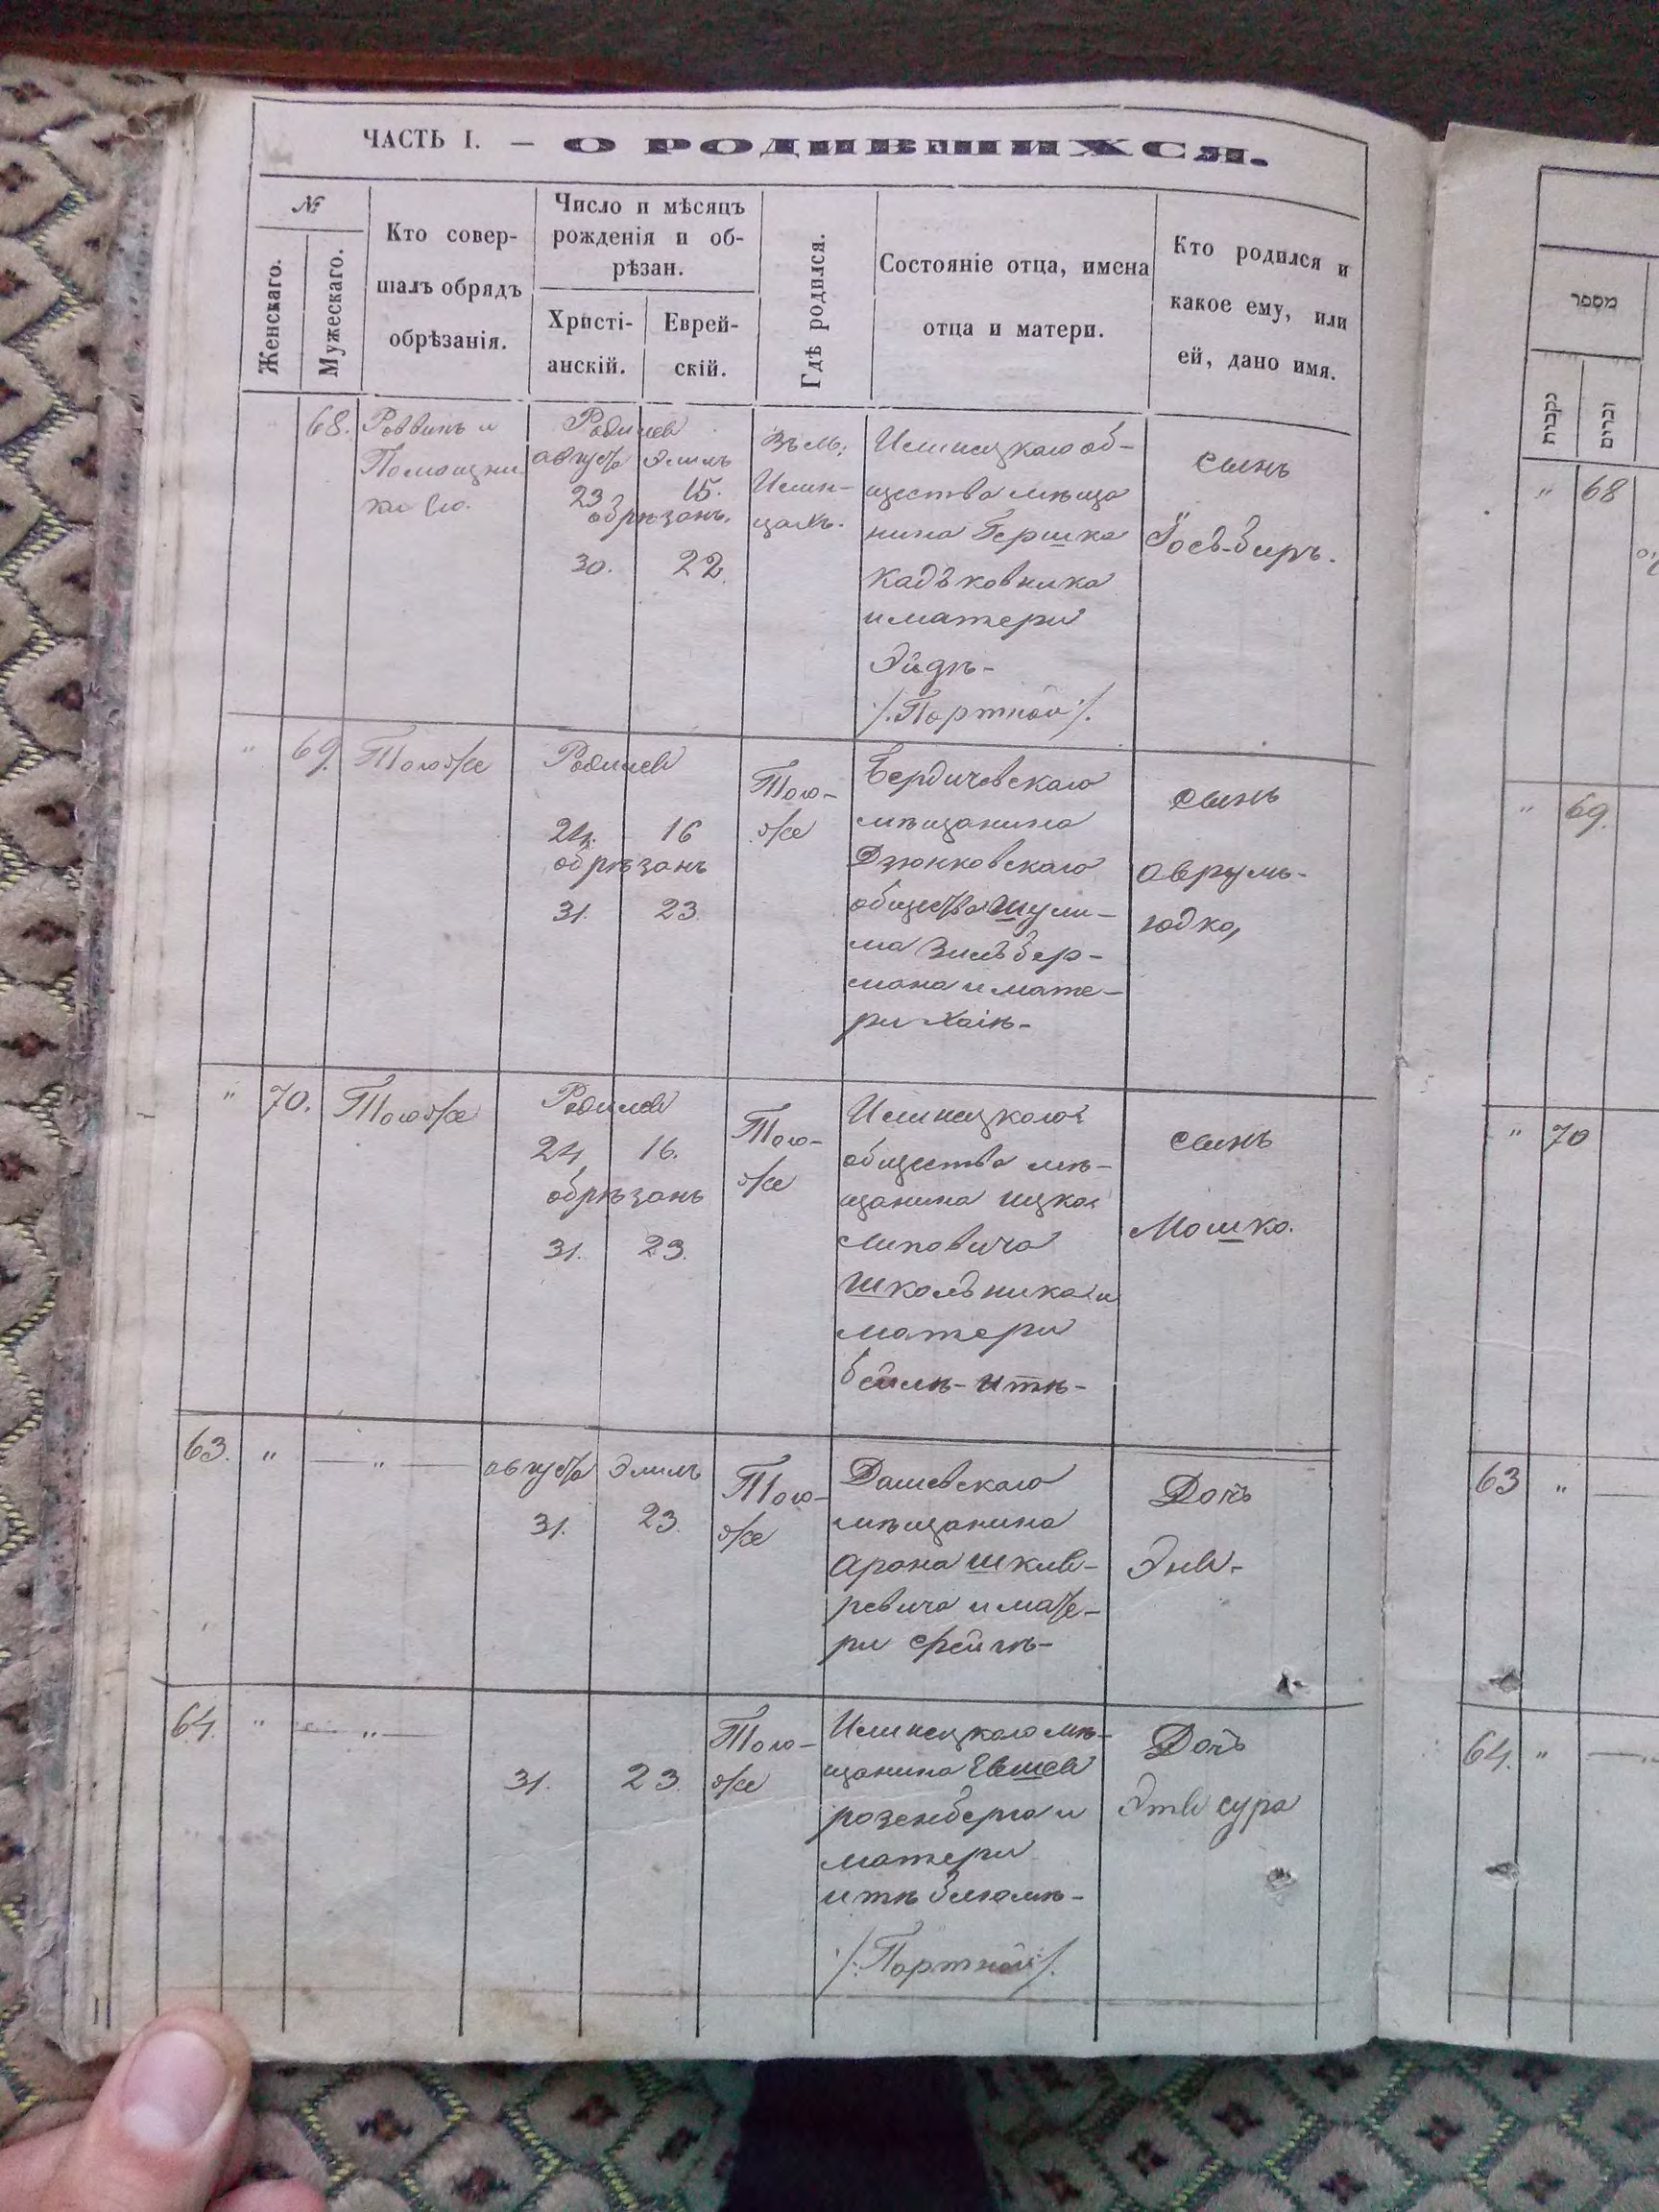 ЧАСТЬ I. — О РОДИВШИХСЯ.
№
Женскаго.
Мужескаго.
Кто совер-
шалъ обрядъ
обрѣзанія.
Число и мѣсяцъ
рожденія и об-
рѣзан.
Христі-
анскій.
Еврей-
скій.
Гдѣ родился.
Состояніе отца, имена
отца и матери.
Кто родился и
какое ему, или
ей, дано имя.
68.
Раввинъ и
Помощни
ки его.
Родился
августа Элилъ
23 15.
обрѣзанъ.
30. 22.
Въ м.
Илин-
цахъ.
Илинецкаго об-
щества мѣща
нина Гершка
кадъковника
и матери
Эйдѣ-
/.Портной/.
сынъ
Іось-беръ.
" 69. Тогоже
Родился
24. 16
обрѣзанъ
31. 23
Того-
же
Бердичевскаго
мѣщанина
Дзюнковскаго
общества Шули-
ма Зильбер-
мана и мате-
ри Хаік-
сынъ
аврумъ-
юдко,
" 70. Тогоже
Родился
24 16.
обрѣзанъ
31. 23.
Того-
же
Илинецкаго
общества мѣ-
щанина ицка
липовича
школьника и
матери
бейлѣ-итѣ-
сынъ
Мошко.
63. " — " —
августа Элилъ
31. 23.
Того-
же
Дашевскаго
мѣщанина
арона
ревича и мате-
ри фейгѣ-
Дочь
64. " — " —
31. 23.
Того-
же
Илинецкаго мѣ-
щанина
розенберга и
матери
итѣ блюмѣ-
/:Портной:/.
Дочь
сура
מספר
נקבות
זכרים
" 68
" 69.
" 70
63 "
64. "